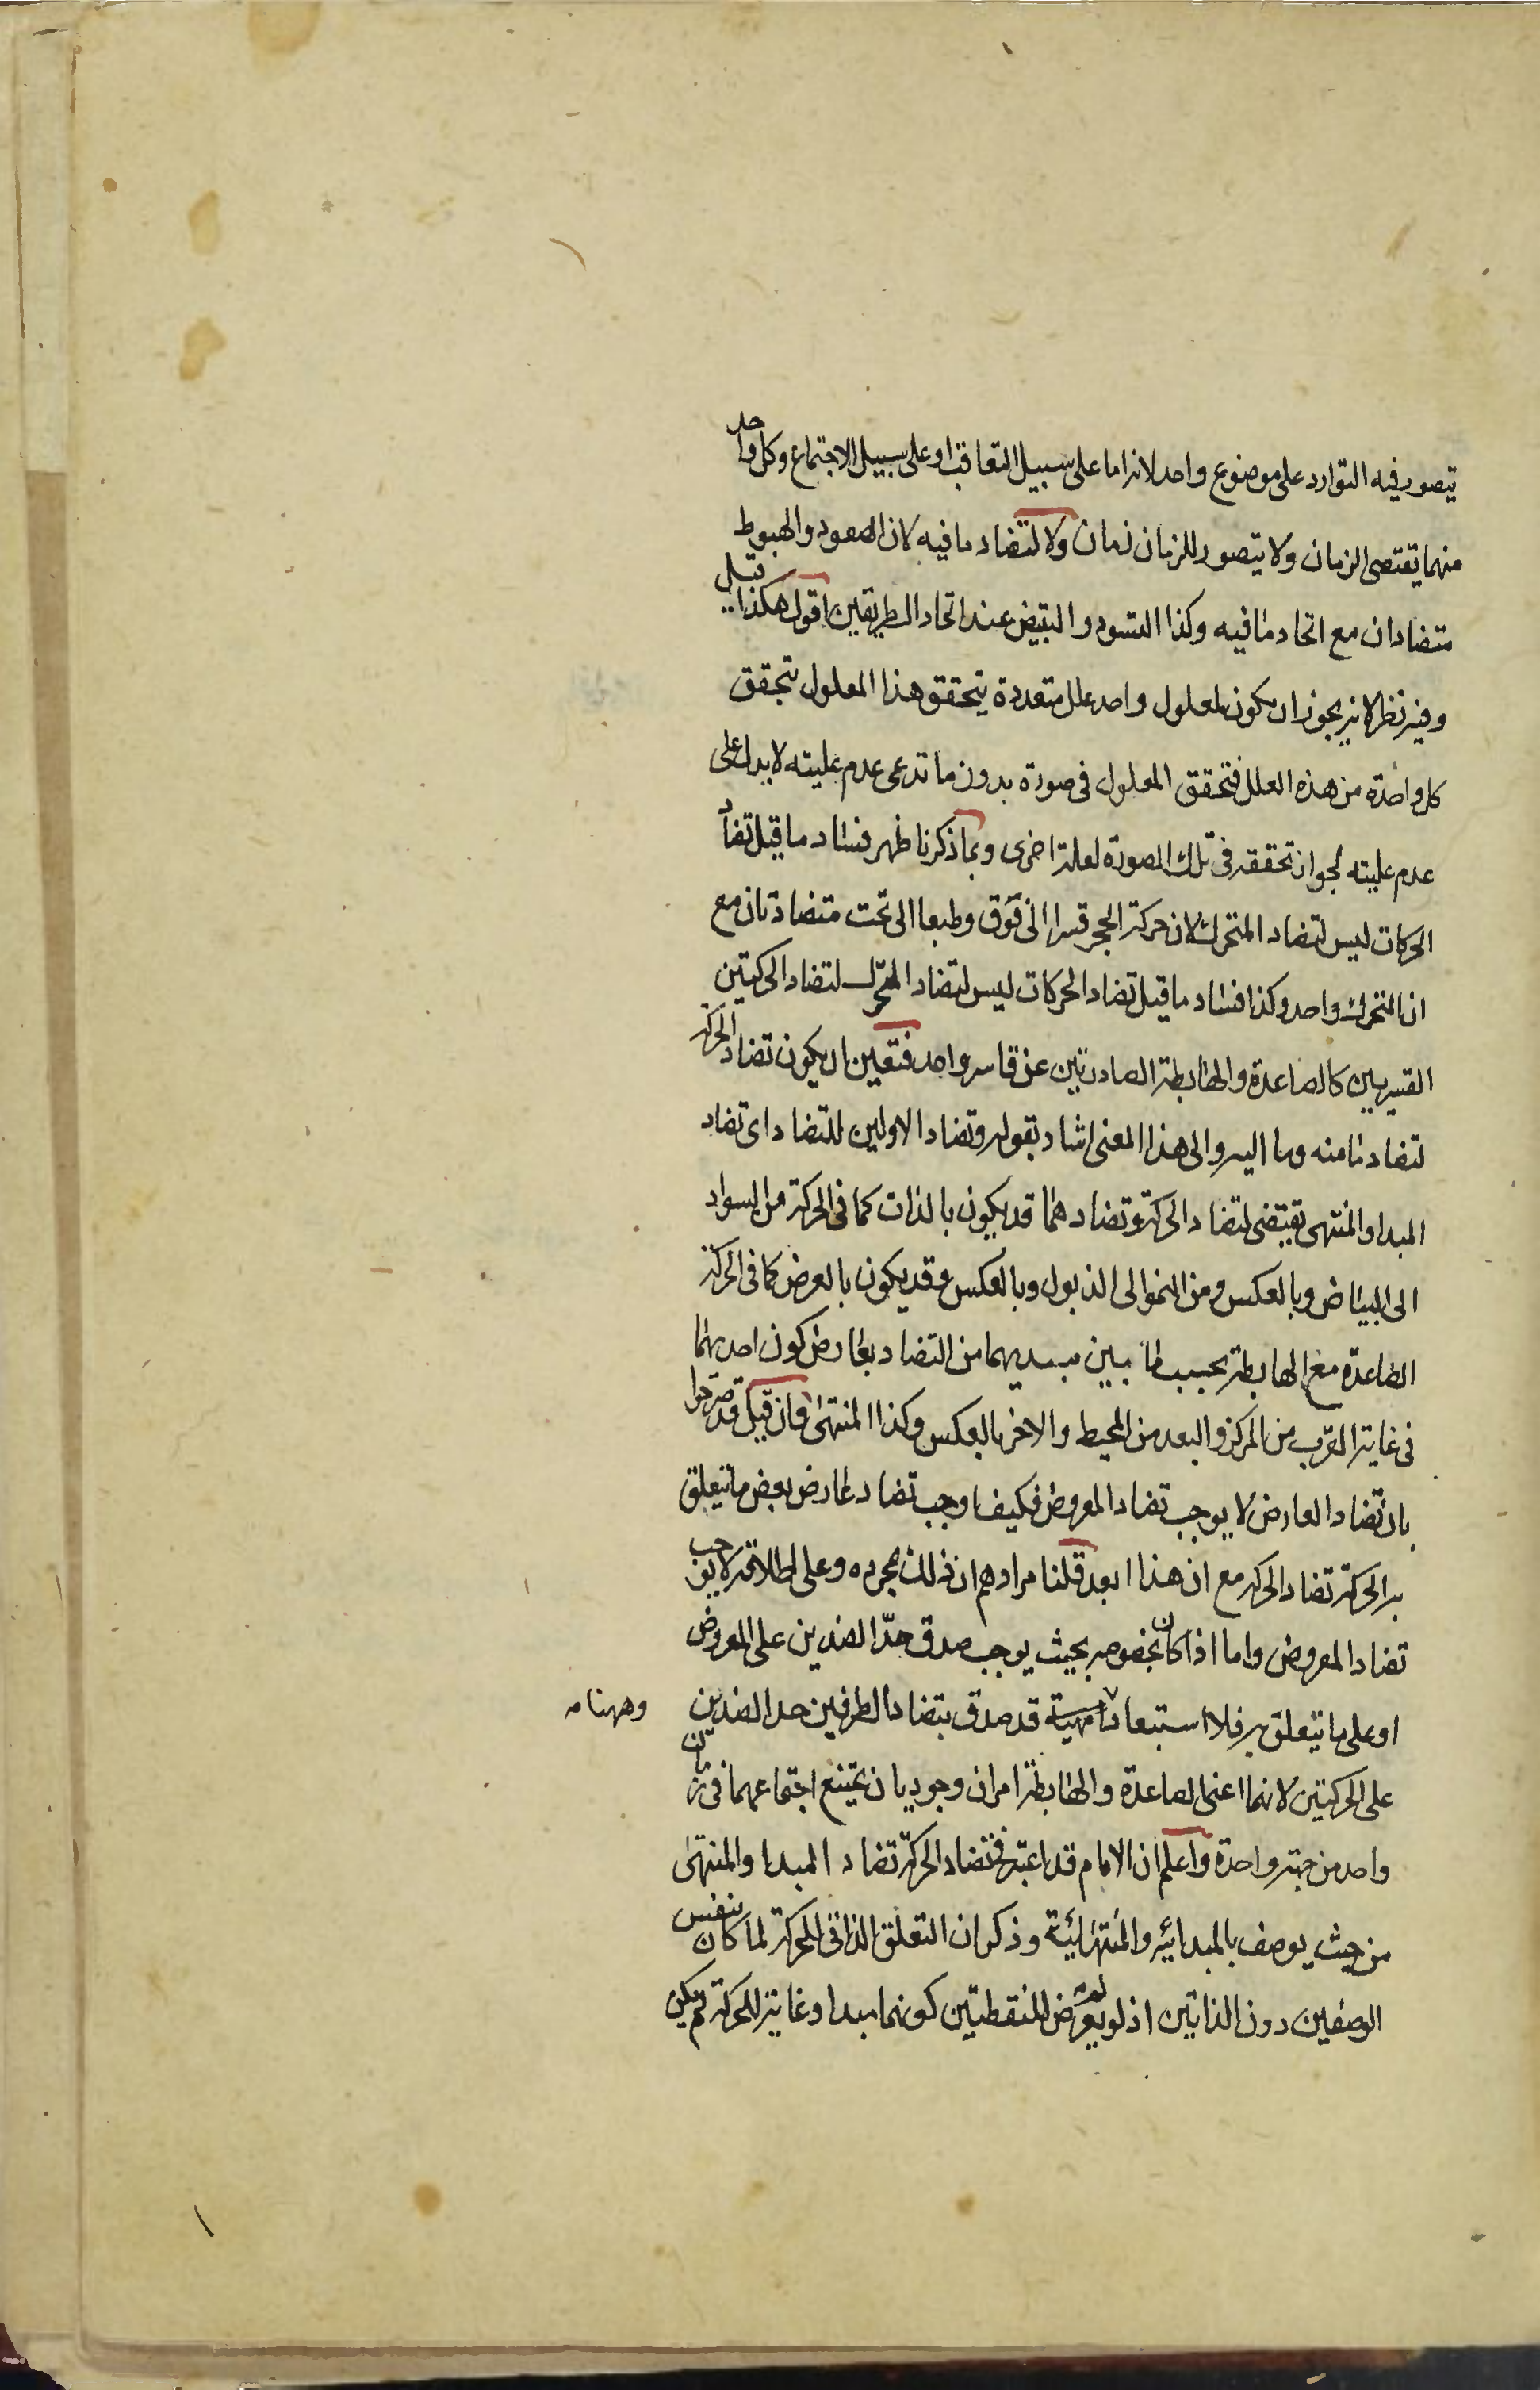 يتصور فيه التوارد على موضوع واحد لانه اما على سبيل التعاقب او على سبيل الاجتماع وكل واحد
منهما يقتضى الزمان ولا يتصور للزمان زمان ولا لتضاد ما فيه لان الصعود والهبوط
متضادان مع اتحاد ما فيه وكذا التسود والتبيض عند اتحاد الطريقين اقول هكذا قيل
وفيه نظر لانه يجوز ان يكون لمعلول واحد علل متعددة يتحقق هذا المعلول بتحقق
كل واحدة من هذه العلل فتحقق المعلول فى صورة بدون ما تدعى عدم عليته لا يدل على
عدم عليته لجواز تحققه فى تلك الصورة لعلة اخرى وبما ذكرنا ظهر فساد ما قيل تضاد
الحركات ليس لتضاد المتحرك لان حركة الحجر قسرا الى فوق وطبعا الى تحت متضادتان مع
ان المتحرك واحد وكذا فساد ما قيل تضاد الحركات ليس لتضاد المحرك لتضاد الحركتين
القسريين كالصاعدة والهابطة الصادرتين عن قاسر واحد فتعين ان يكون تضاد الحركة
لتضاد ما منه وما اليه والى هذا المعنى اشار بقوله وتضاد الاولين للتضاد اى تضاد
المبدا والمنتهى يقتضى لتضاد الحركة وتضادهما قد يكون بالذات كما فى الحركة من السواد
الى البياض وبالعكس ومن النمو الى الذبول وبالعكس وقد يكون بالعرض كما فى الحركة
الصاعدة مع الهابطة بحسب ما بين مبديهما من التضاد بعارض كون احديهما
فى غاية القرب من المركز والبعد من المحيط والاخر بالعكس وكذا المنتهى فان قيل قد صرحوا
بان تضاد العارض لا يوجب تضاد المعروض فكيف اوجب تضاد عارض بعض ما يتعلق
به الحركة تضاد الحركة مع ان هذا ابعد قلنا مرادهم ان ذلك بمجرده وعلى اطلاقه لا يوجب
تضاد المعروض واما اذا كان بخصوصه بحيث يوجب صدق حد الضدين على المعروض
او على ما يتعلق به فلا استبعاد فيه قد صدق بتضاد الطرفين حد الضدين
وههنا مه
على الحركتين لانهما اعنى الصاعدة والهابطة امران وجوديان يمتنع اجتماعهما فى زمان
واحد من جهة واحدة واعلم ان الامام قد اعتبر فى تضاد الحركة تضاد المبدا والمنتهى
من حيث يوصف بالمبدائية والمنتهائية وذكر ان التعلق الذاتى للحركة لما كان بنفس
الوصفين دون الذاتين اذ لو لم يعرض للنقطتين كونهما مبدا وغاية للحركة لم يكن